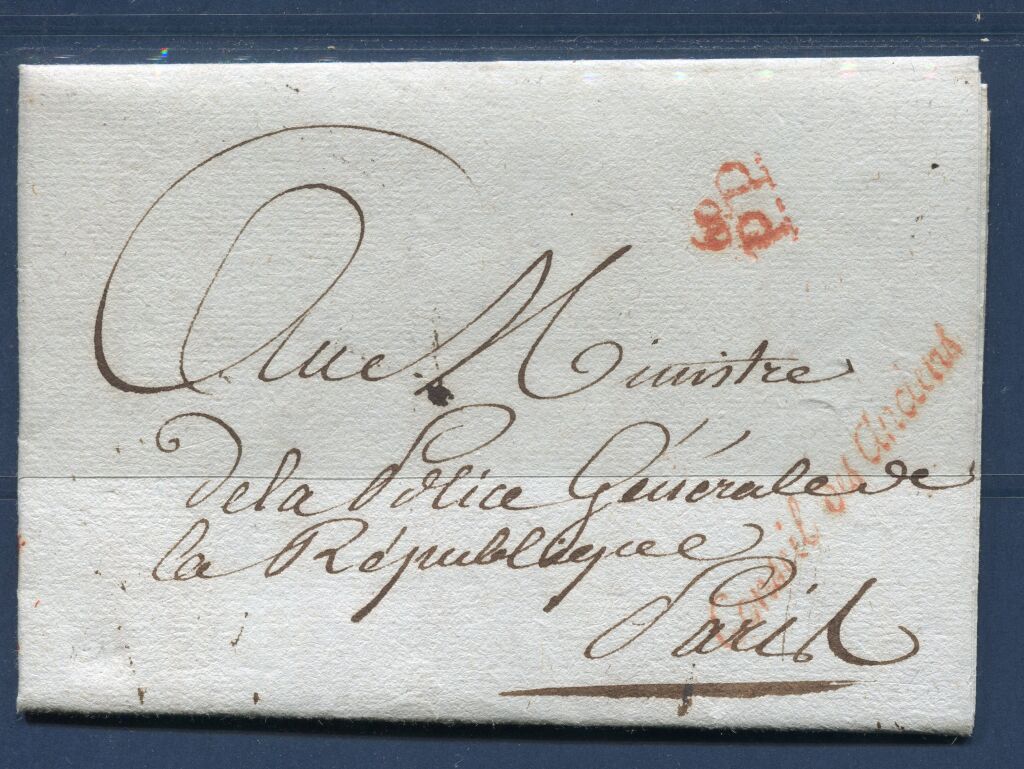 P.P.
Au Ministre
De la Police Générale de
la République
Paris
Conseil des Anciens